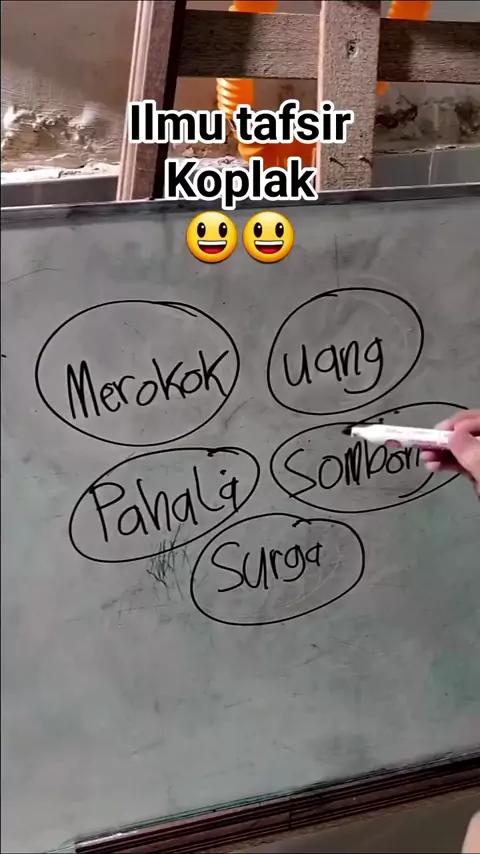 Ilmu tafsir
Koplak
Merokok
uang
Pahala
Sombon
Surga